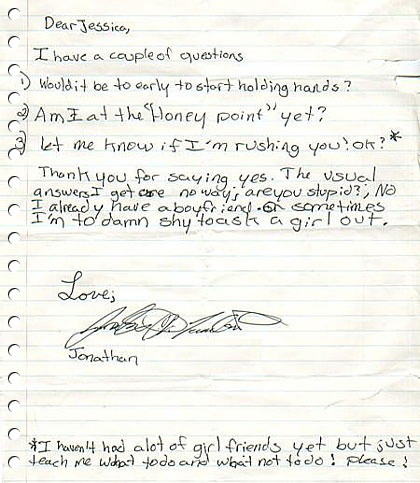 Dear Jessica,
I have a couple of questions
1) Would it be to early to start holding hands?
2) Am I at the "Honey point" yet?
3) let me know if I'm rushing you! ok?*
Thank you for saying yes. The usual
answers I get are no way; are you stupid?; NO
I already have a boyfriend. or sometimes
I'm to damn shy to ask a girl out.
Love;
Jonathan
*I haven't had alot of girl friends yet but just
teach me what to do and what not to do! please!